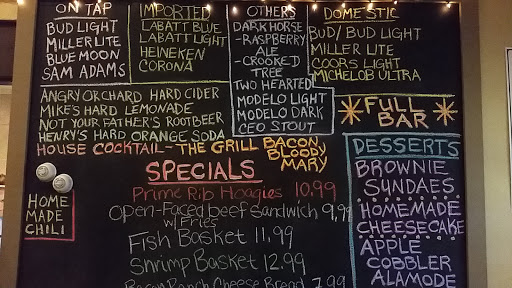 ON TAP
BUD LIGHT
MILLER LITE
BLUE MOON
SAM ADAMS
IMPORTED
LABATT BLUE
LABATT LIGHT
HEINEKEN
CORONA
OTHERS
DARK HORSE
-RASPBERRY
ALE
-CROOKED
TREE
TWO HEARTED
MODELO LIGHT
MODELO DARK
CEO STOUT
DOMESTIC
BUD/BUD LIGHT
MILLER LITE
COORS LIGHT
MICHELOB ULTRA
ANGRY ORCHARD HARD CIDER
MIKE'S HARD LEMONADE
NOT YOUR FATHER'S ROOTBEER
HENRY'S HARD ORANGE SODA
HOUSE COCKTAIL~THE GRILL BACON
BLOODY
MARY
FULL
BAR
HOME
MADE
CHILI
SPECIALS
Prime Rib Hoagies 10.99
Open-Faced beef Sandwich 9.99
w/Fries
Fish Basket 11.99
Shrimp Basket 12.99
Bacon Ranch Cheese Bread 7.99
DESSERTS
BROWNIE
SUNDAES
HOMEMADE
CHEESECAKE
APPLE
COBBLER
ALAMODE